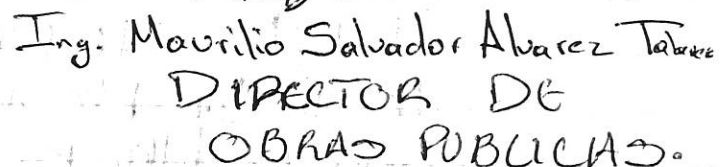 Ing. Maurilio Salvador Alvarez
DIRECTOR DE
OBRAS PUBLICAS.